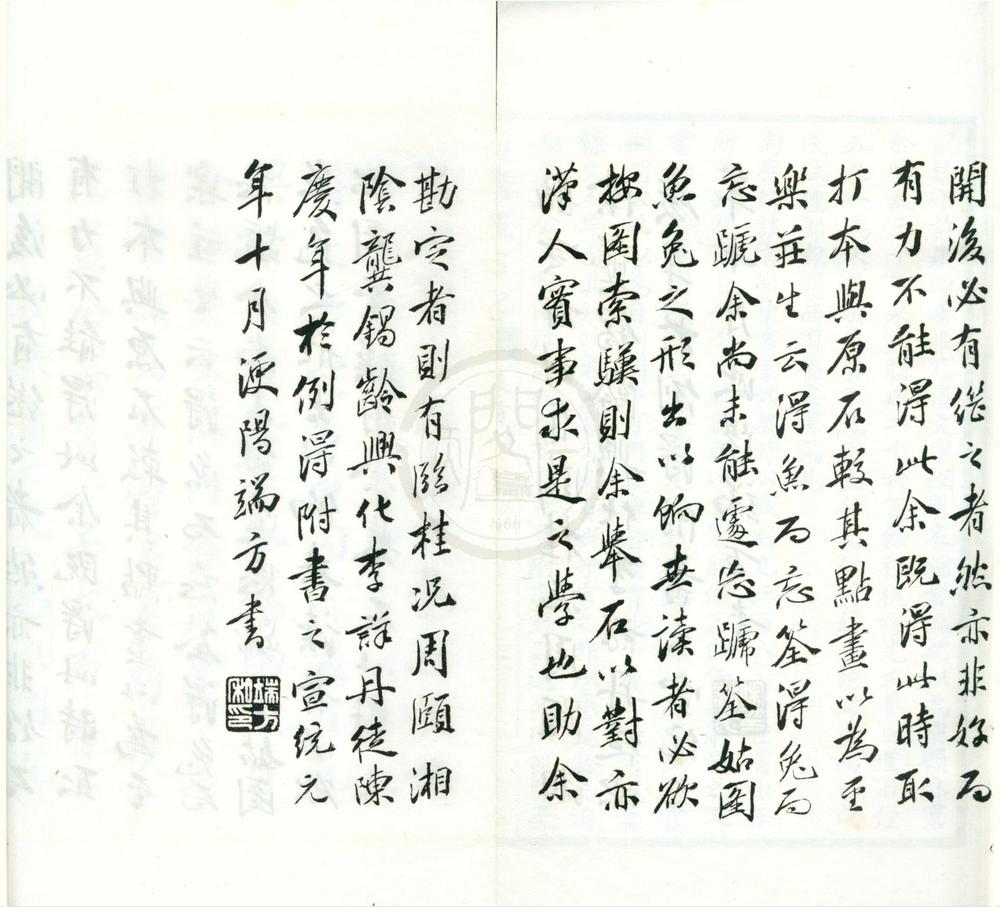 開後必有繼之者然亦非好而
有力不能得此余既得此時取
打本與原石較其點畫以為至
樂莊生云得魚而忘筌得兔而
忘蹏余尚未能遽忘蹏筌姑圖
魚兔之形出以餉世讀者必欲
按圖索驥則余舉石以對亦
漢人實事求是之學也助余
勘定者則有臨桂況周頤湘
陰龔錫齡興化李詳丹徒陳
慶年於例得附書之宣統元
年十月浭陽端方書
端方私印